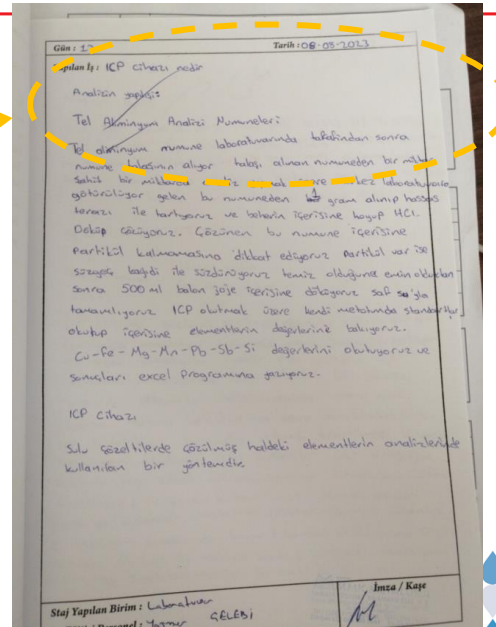 Gün : 17 Tarih : 08-08-2023
Yapılan İş : ICP Cihazı nedir
Analizin yapılışı:
Tel Alüminyum Analizi Numuneleri:
Tel alüminyum numune laboratuvarında tarafından sonra
numune talaşının alıyor talaşı alınan numuneden bir miktar
bir miktarda laboratuvara
götürülüyor gelen bu numuneden 1 gram alınıp hassas
terazi ile tartıyoruz ve beherin içerisine koyup HCl.
Döküp çözüyoruz. Çözünen bu numune içerisine
Partikül kalmamasına dikkat ediyoruz Partikül var ise
süzgeç kağıdı ile süzdürüyoruz temiz olduğuna emin olduktan
sonra 500 ml balon joje içerisine döküyoruz saf su'yla
tamamlıyoruz ICP okutmak üzere kendi metalında standartlar
okutup içerisine elementlerin değerlerine bakıyoruz.
Cu-Fe-Mg-Mn-Pb-Sb-Si değerlerini okutuyoruz ve
sonuçları excel Programına yazıyoruz.
ICP Cihazı
Sulu çözeltilerde çözülmüş haldeki elementlerin analizlerinde
kullanılan bir yöntemdir.
İmza / Kaşe
Staj Yapılan Birim : Laboratuvar
Personel : ÇELEBİ